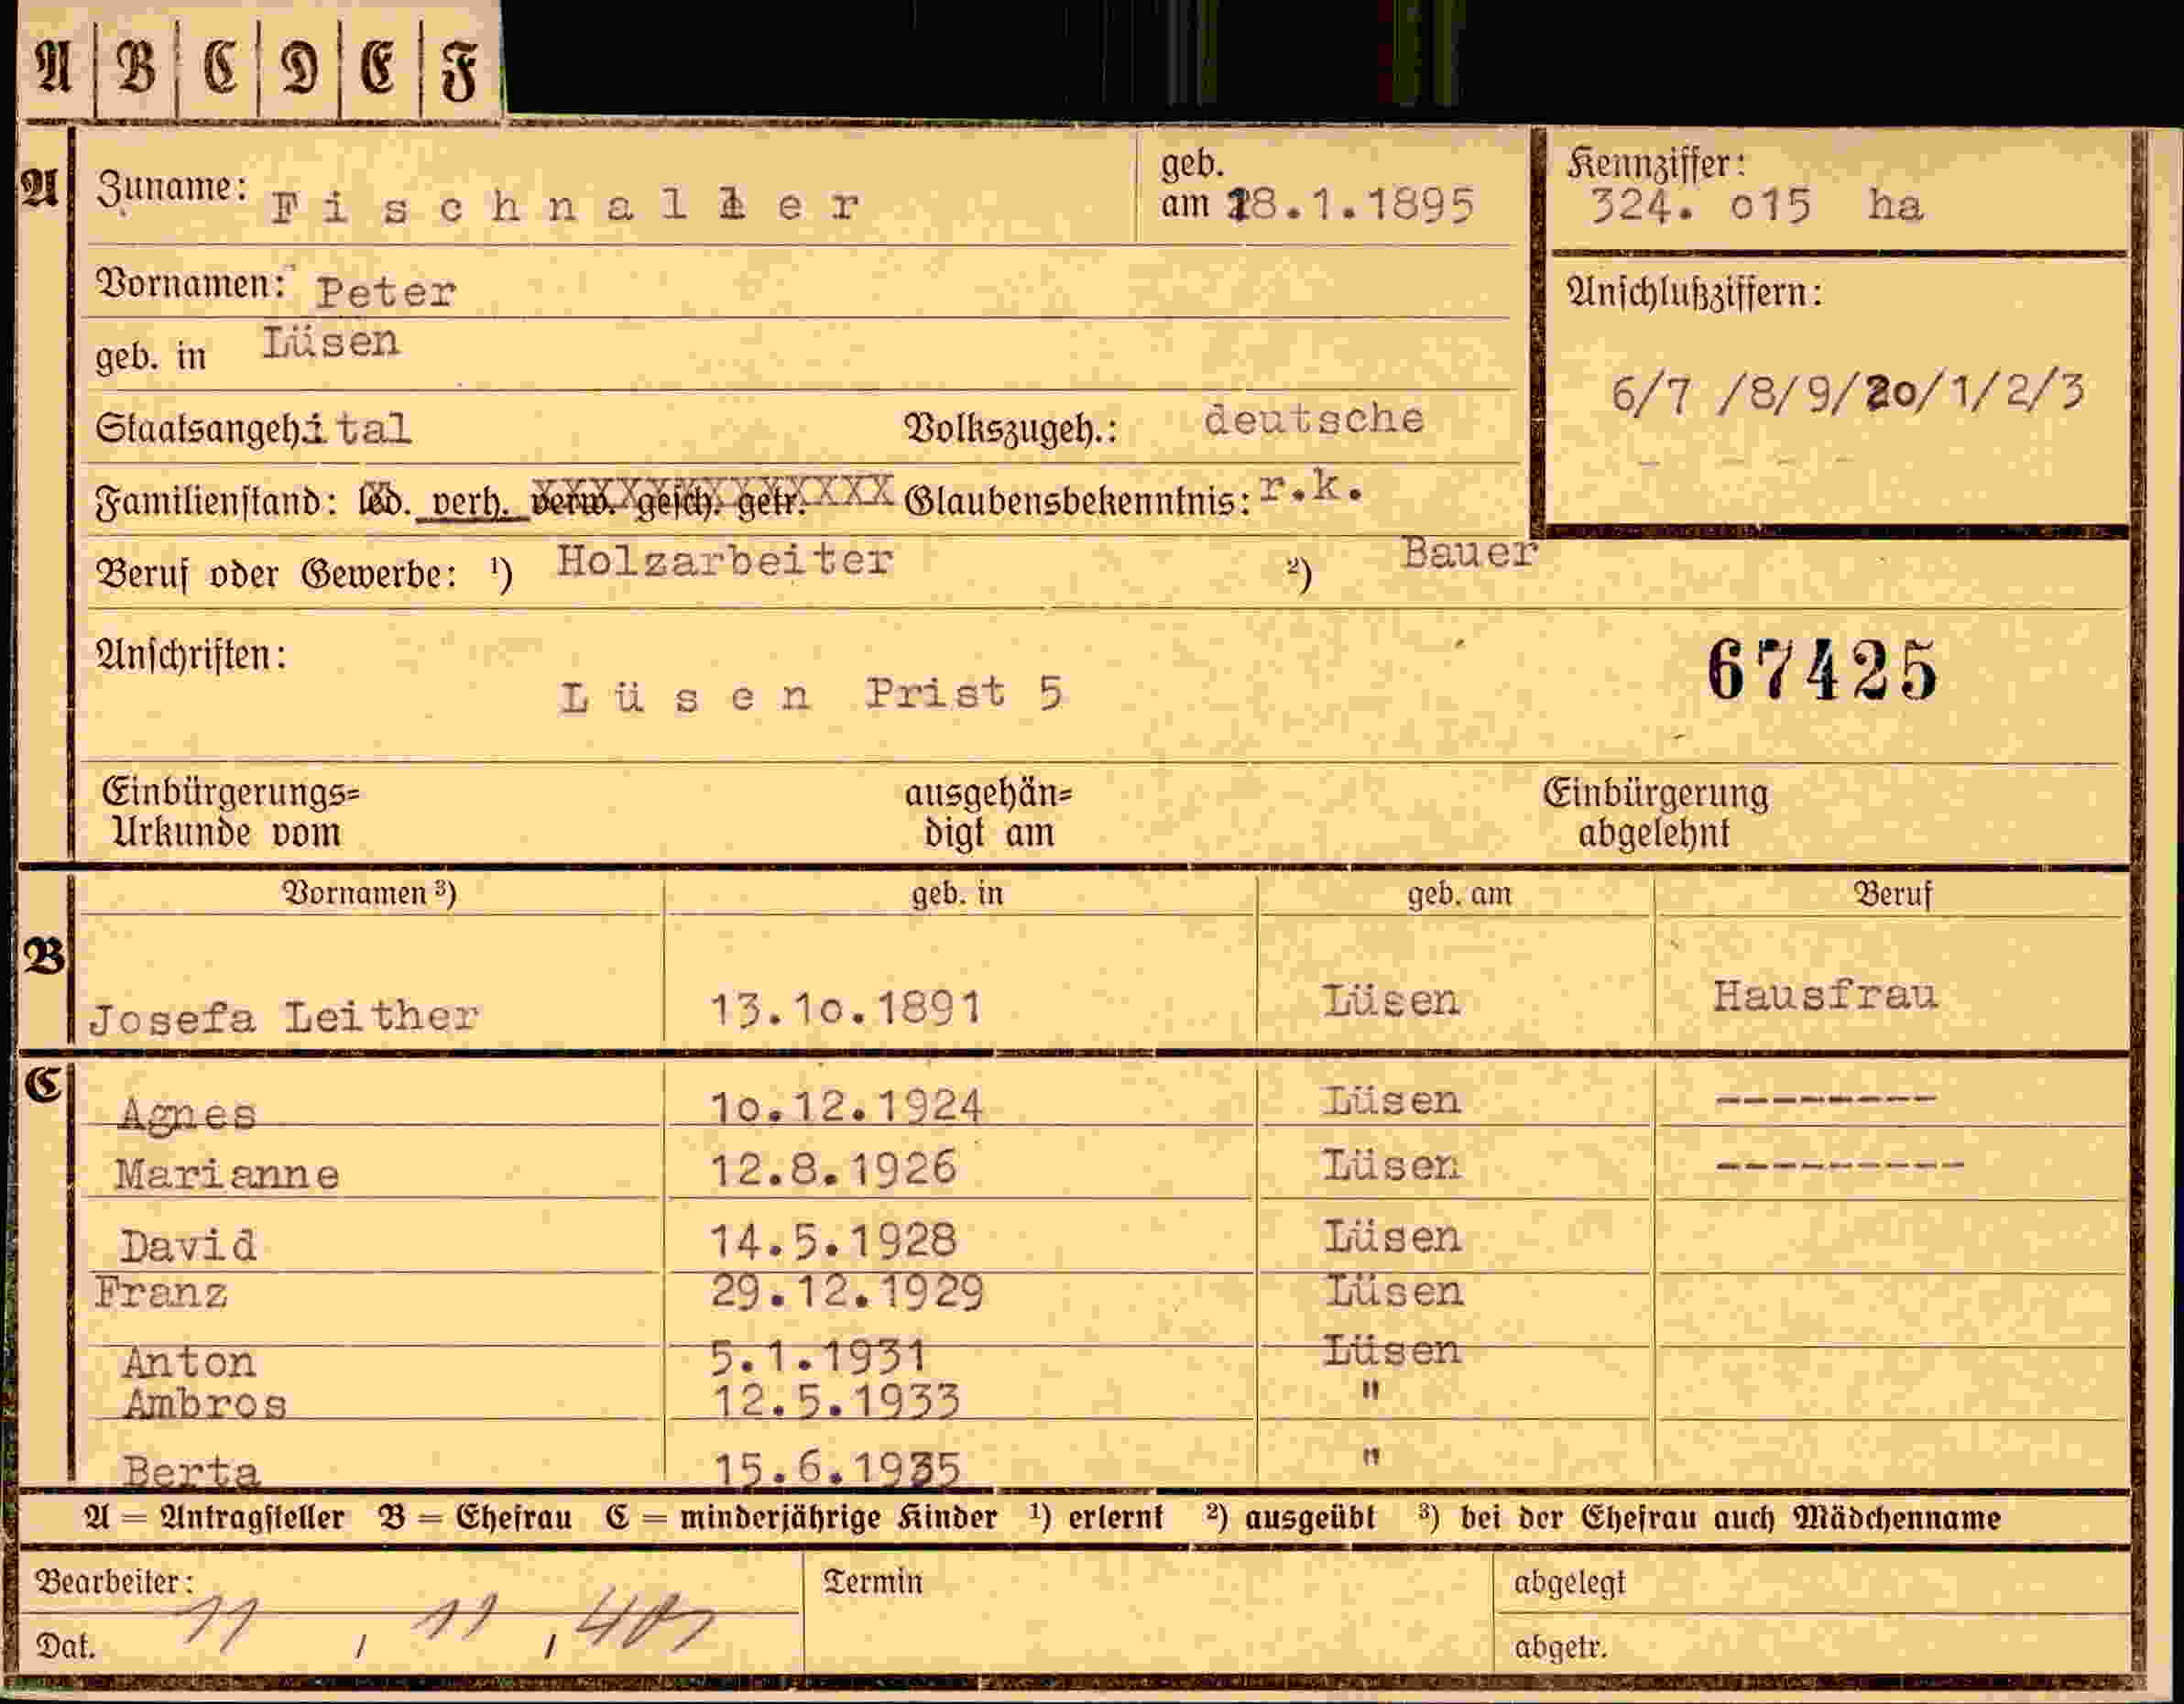 A B C D E F
A Zuname: Fischnaller geb. am 18.1.1895 Kennziffer: 324. o15 ha
Vornamen: Peter Anschlußziffern:
geb. in Lüsen
6/7 /8/9/20/1/2/3
Staatsangeh. ital Volkszugeh.: deutsche
Familienstand: led. verh. verw. gesch. getr. Glaubensbekenntnis: r.k.
Beruf oder Gewerbe: ¹) Holzarbeiter ²) Bauer
Anschriften:
Lüsen Prist 5 67425
Einbürgerungs= ausgehän= Einbürgerung
Urkunde vom digt am abgelehnt
Vornamen ³) geb. in geb. am Beruf
B
Josefa Leither 13.1o.1891 Lüsen Hausfrau
C
Agnes 1o.12.1924 Lüsen --------
Marianne 12.8.1926 Lüsen ---------
David 14.5.1928 Lüsen
Franz 29.12.1929 Lüsen
Anton 5.1.1931 Lüsen
Ambros 12.5.1933 "
Berta 15.6.1935 "
A = Antragsteller B = Ehefrau C = minderjährige Kinder ¹) erlernt ²) ausgeübt ³) bei der Ehefrau auch Mädchenname
Bearbeiter: Termin abgelegt
Dat. 11 / 11 / abgetr.